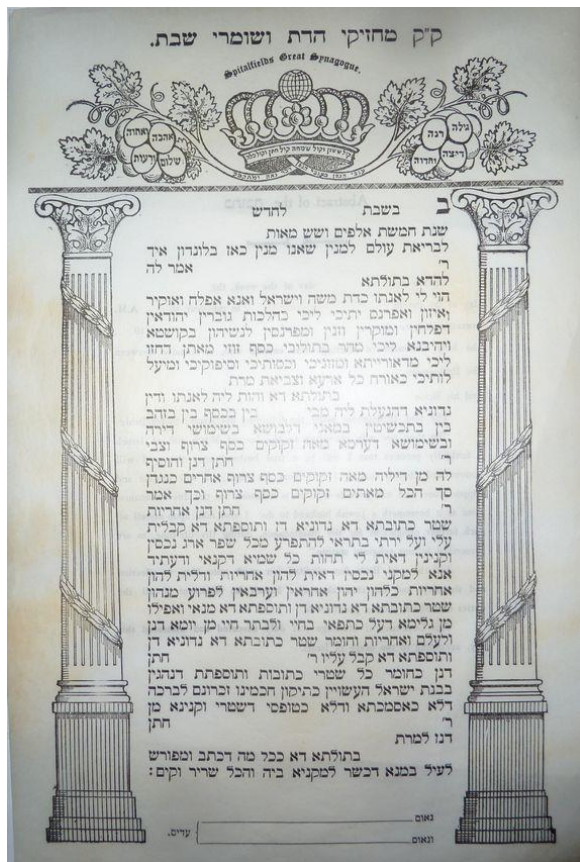 ק"ק מחזיקי הדת ושומרי שבת.
Spitalfields Great Synagogue.
גילה
רנה
דיצה
וחדוה
אהבה
ואחוה
שלום
ורעות
ב בשבת לחדש
שנת חמשת אלפים ושש מאות
לבריאת עולם למנין שאנו מנין כאן בלונדון איך
ר' אמר לה
להדא בתולתא
הוי לי לאנתו כדת משה וישראל ואנא אפלח ואוקיר
ואיזון ואפרנס יתיכי ליכי כהלכות גוברין יהודאין
דפלחין ומוקרין וזנין ומפרנסין לנשיהון בקושטא
ויהיבנא ליכי מהר בתוליכי כסף זוזי מאתן דחזו
ליכי מדאורייתא ומזוניכי וכסותיכי וסיפוקיכי ומיעל
לותיכי כאורח כל ארעא וצביאת מרת
בתולתא דא והות ליה לאנתו ודין
נדוניא דהנעלת ליה מבי בין בכסף בין בזהב
בין בתכשיטין במאני דלבושא בשימושי דירה
ובשימושא דערסא מאה זקוקים כסף צרוף וצבי
ר' חתן דנן והוסיף
לה מן דיליה מאה זקוקים כסף צרוף אחרים כנגדן
סך הכל מאתים זקוקים כסף צרוף וכך אמר
ר' חתן דנן אחריות
שטר כתובתא דא נדוניא דן ותוספתא דא קבלית
עלי ועל ירתי בתראי להתפרע מכל שפר ארג נכסין
וקנינין דאית לי תחות כל שמיא דקנאי ודעתיד
אנא למקני נכסין דאית להון אחריות ודלית להון
אחריות כלהון יהון אחראין וערבאין לפרוע מנהון
שטר כתובתא דא נדוניא דן ותוספתא דא מנאי ואפילו
מן גלימא דעל כתפאי בחיי ולבתר חיי מן יומא דנן
ולעלם ואחריות וחומר שטר כתובתא דא נדוניא דן
ותוספתא דא קבל עליו ר' חתן
דנן כחומר כל שטרי כתובות ותוספתת דנהגין
בבנת ישראל העשויין כתיקון חכמינו זכרונם לברכה
דלא כאסמכתא ודלא כטופסי דשטרי וקנינא מן
ר' חתן
דנן למרת
בתולתא דא ככל מה דכתב ומפורש
לעיל במנא דכשר למקניא ביה והכל שריר וקים:
נאום
ונאום
עדים.